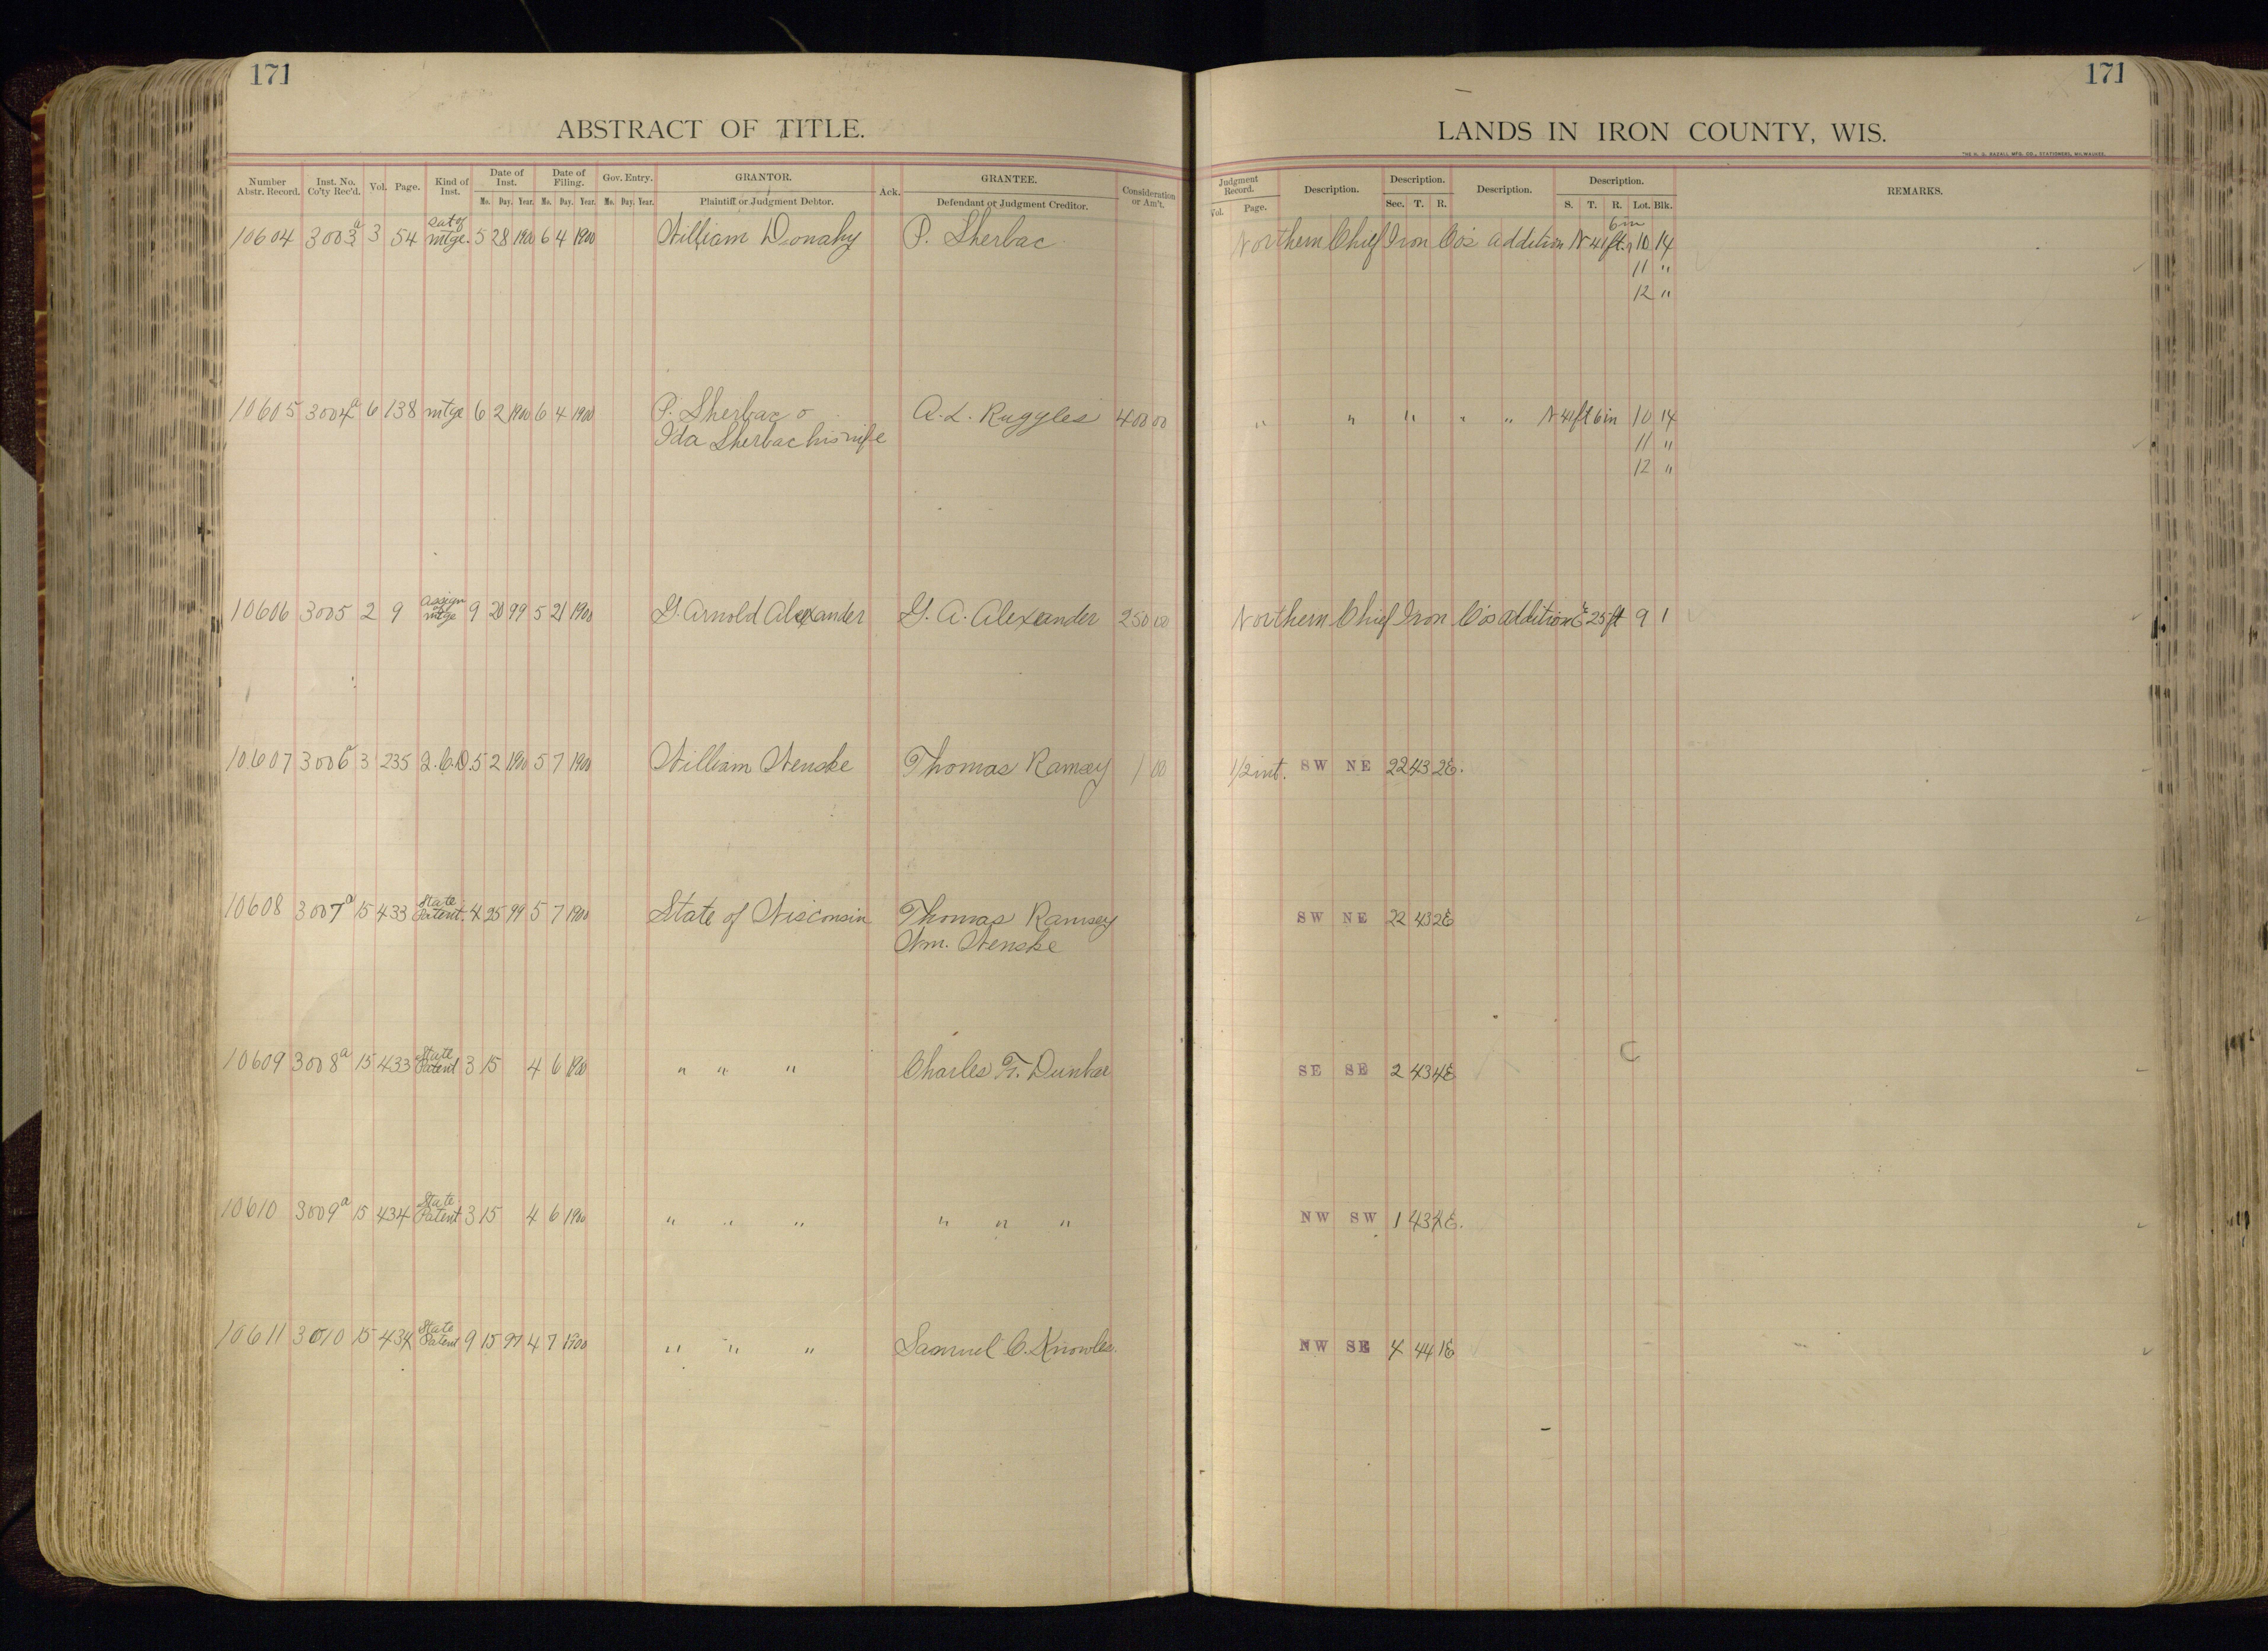 171
ABSTRACT OF TITLE.
Number Abstr. Record. Inst. No. Co'ty Rec'd. Vol. Page. Kind of Inst. Date of Inst. Mo. Day. Year. Date of Filing. Mo. Day. Year. Gov. Entry. Mo. Day. Year. GRANTOR. Plaintiff or Judgment Debtor. Ack. GRANTEE. Defendant or Judgment Creditor. Consideration or Am't.
10604 3003a 3 54 Sat of mtge. 5 28 1900 6 4 1900 William Donahy P. Sherbac
10605 3004a 6 138 mtge 6 2 1900 6 4 1900 P. Sherbac & A. L. Ruggles 400 00
Ida Sherbac his wife
10606 3005 2 9 Assign of mtge 9 20 99 5 21 1900 G. Arnold Alexander G. A. Alexander 250 00
10607 3006a 3 235 2.C.D. 5 2 1900 5 7 1900 William Wenske Thomas Ramsey 1 00
10608 3007a 15 433 State Patent. 4 25 99 5 7 1900 State of Wisconsin Thomas Ramsey
Wm. Wenske
10609 3008a 15 433 State Patent 3 15 4 6 1900 " " " Charles F. Dunbar
10610 3009a 15 434 State Patent 3 15 4 6 1900 " " " " " "
10611 3010 15 434 State Patent 9 15 97 4 7 1900 " " " Samuel C. Knowles.
171
LANDS IN IRON COUNTY, WIS.
THE H. G. RAZALL MFG. CO., STATIONERS, MILWAUKEE.
Judgment Record. Vol. Page. Description. Description. Sec. T. R. Description. Description. S. T. R. Lot. Blk. REMARKS.
Northern Chief Iron Co's addition N 41 ft. 6 in 10 14
11 "
12 "
" " " " " N 41 ft 6 in 10 14
11 "
12 "
Northern Chief Iron Co's addition E 25 ft 9 1
1/2 int. SW NE 22 43 2E.
SW NE 22 43 2E
SE SE 2 43 4E
NW SW 1 43 4E.
NW SE 4 44 1E